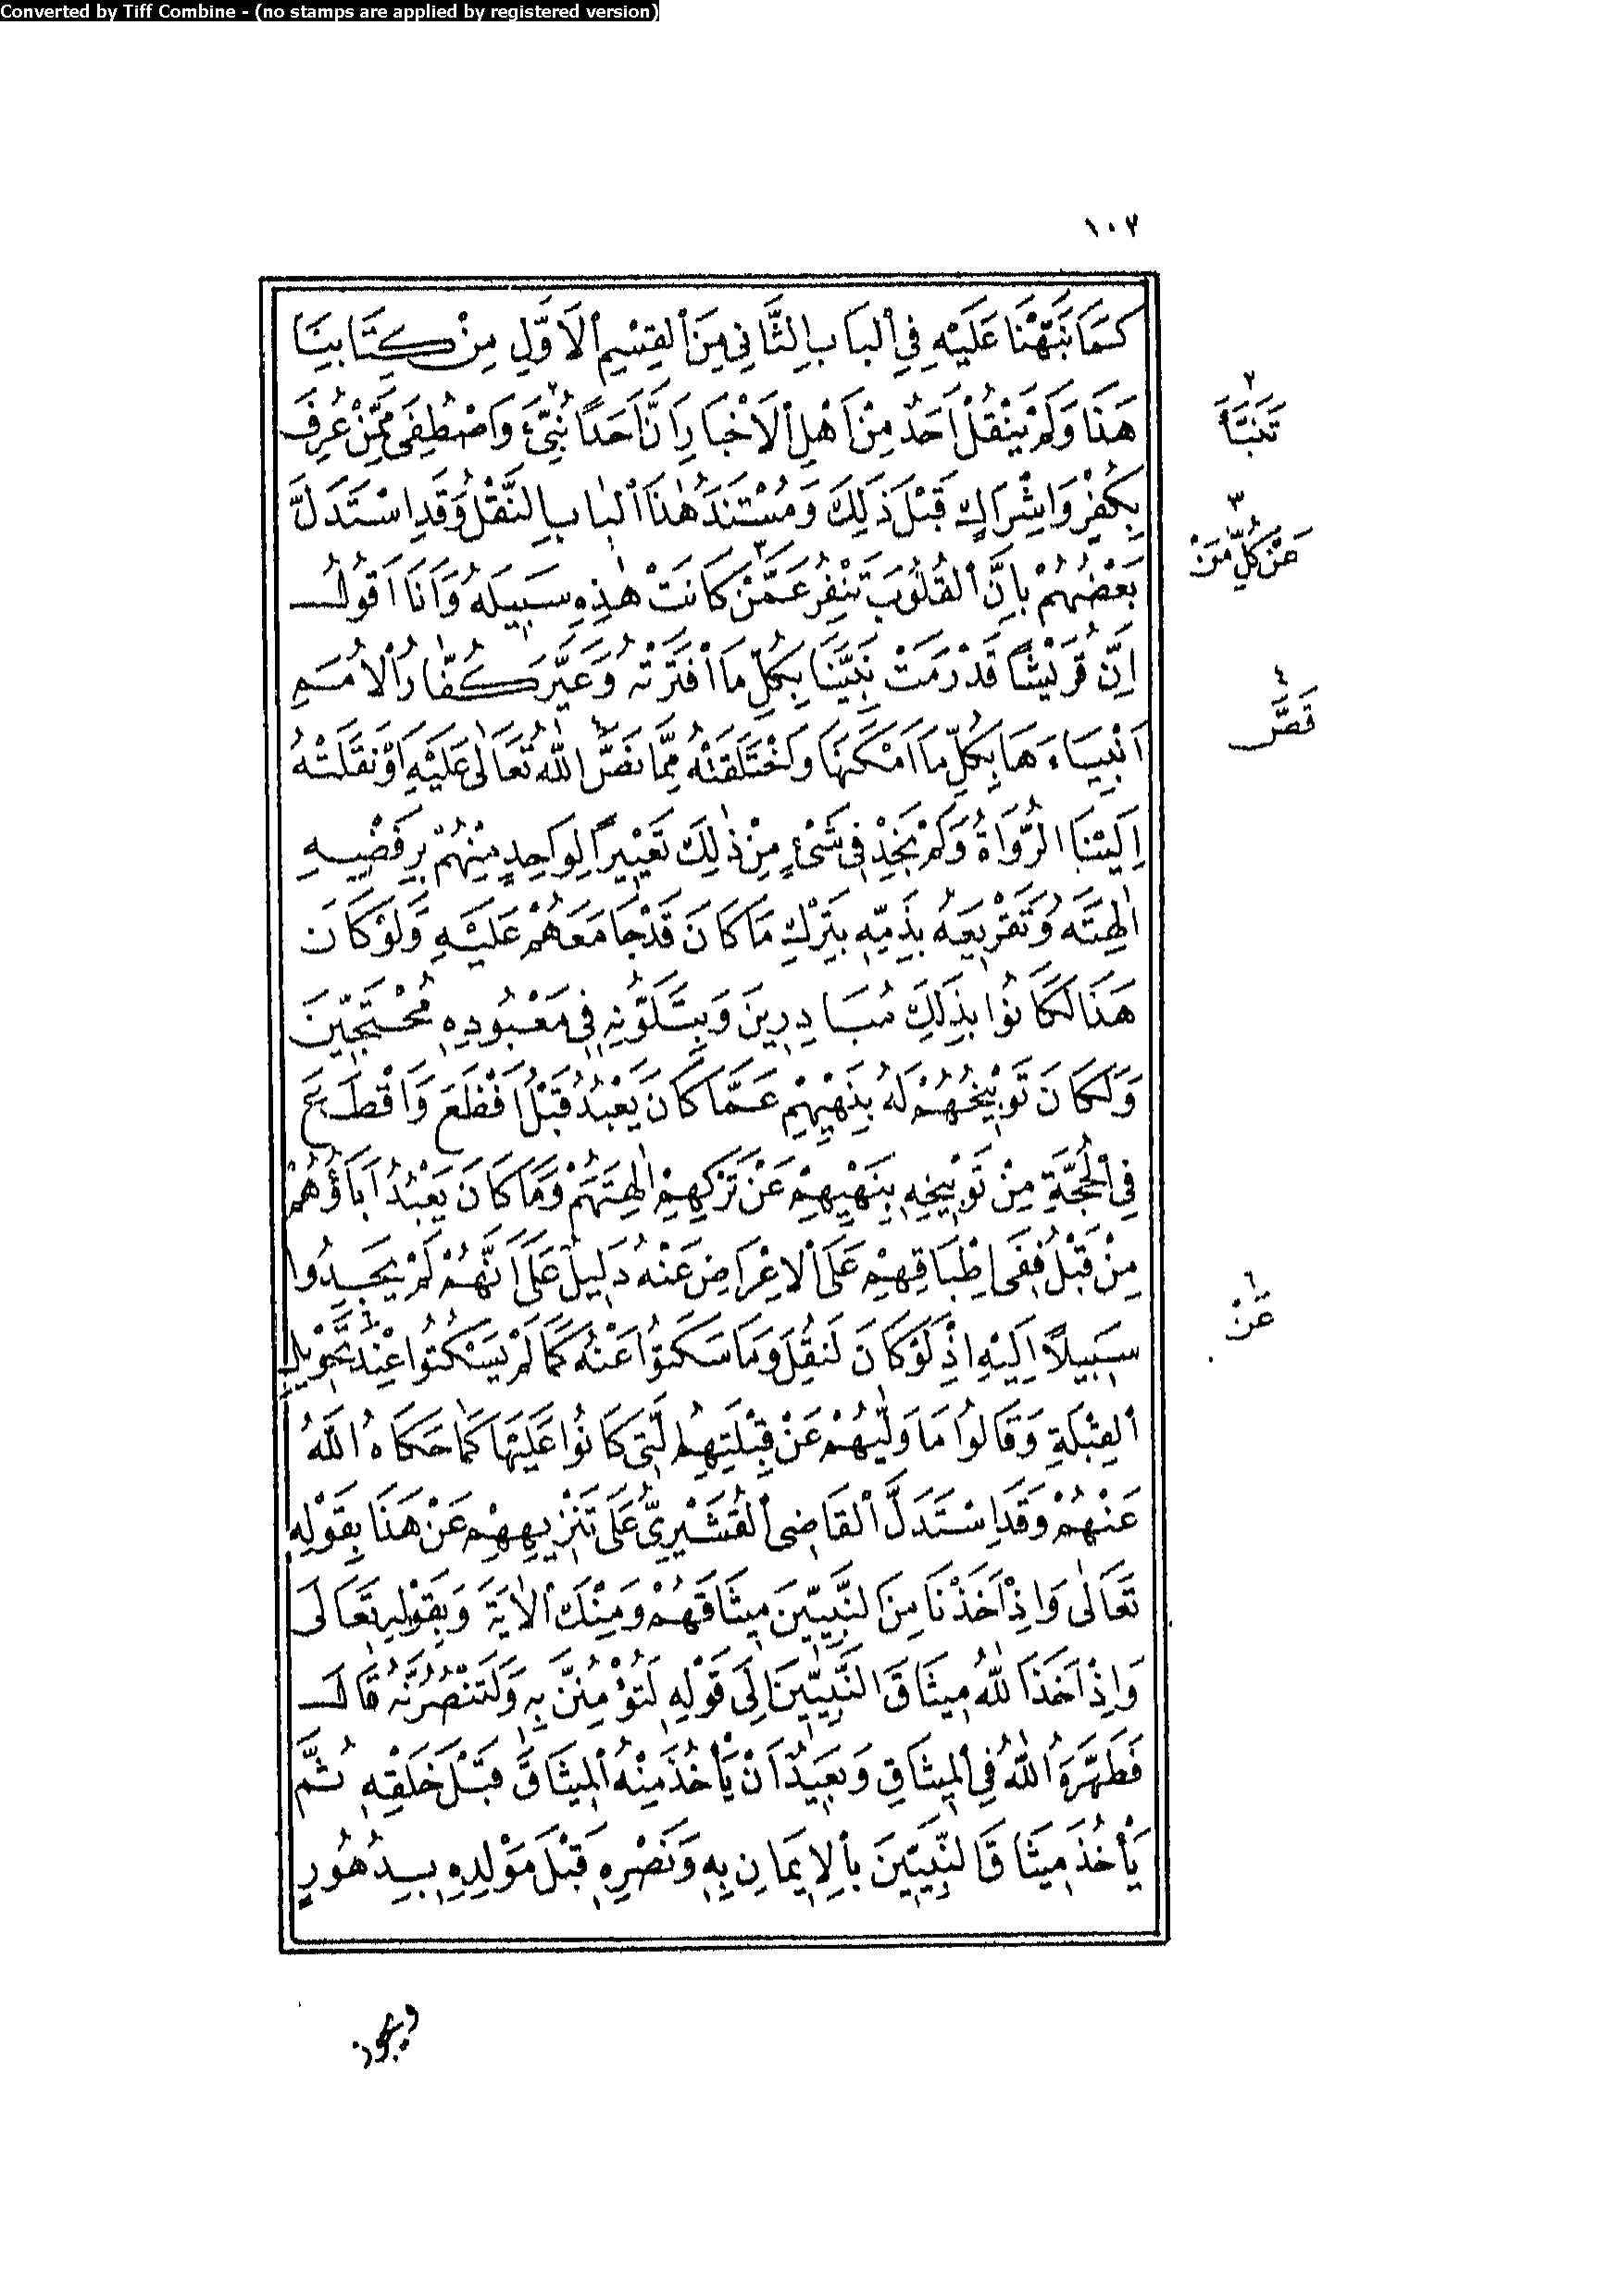 Converted by Tiff Combine - (no stamps are applied by registered version)
١٠٧
كَمَا نَبَّهْنَا عَلَيْهِ فِي الْبَابِ الثَّانِي مِنَ الْقِسْمِ الْأَوَّلِ مِنْ كِتَابِنَا
هَذَا وَلَمْ يَنْقُلْ أَحَدٌ مِنْ أَهْلِ الْأَخْبَارِ أَنَّ أَحَدًا نُبِّئَ وَاصْطُفِيَ مِمَّنْ عُرِفَ
بِكُفْرٍ وَإِشْرَاكٍ قَبْلَ ذَلِكَ وَمُسْتَنَدُ هٰذَا الْبَابِ النَّقْلُ وَقَدِ اسْتَدَلَّ
بَعْضُهُمْ بِأَنَّ الْقُلُوبَ تَنْفِرُ عَمَّنْ كَانَتْ هٰذِهِ سَبِيلَهُ وَأَنَا أَقُولُ
إِنَّ قُرَيْشًا قَدْ رَمَتْ نَبِيَّنَا بِكُلِّ مَا افْتَرَتْهُ وَعَيَّرَ كُفَّارُ الْأُمَمِ
أَنْبِيَاءَهَا بِكُلِّ مَا أَمْكَنَهَا وَاخْتَلَقَتْهُ مِمَّا نَصَّ اللّٰهُ تَعَالٰى عَلَيْهِ أَوْ نَقَلَتْهُ
إِلَيْنَا الرُّوَاةُ وَلَمْ نَجِدْ فِي شَيْءٍ مِنْ ذٰلِكَ تَعْيِيرًا لِوَاحِدٍ مِنْهُمْ بِرَفْضِهِ
اٰلِهَتَهُ وَتَقْرِيعَهُ بِذَمِّهِ بِتَرْكِ مَا كَانَ قَدْ جَامَعَهُمْ عَلَيْهِ وَلَوْ كَانَ
هَذَا لَكَانُوا بِذَلِكَ مُبَادِرِينَ وَبِتَلَوُّنِهِ فِي مَعْبُودِهِ مُحْتَجِّينَ
وَلَكَانَ تَوْبِيخُهُمْ لَهُ بِنَهْيِهِمْ عَمَّا كَانَ يَعْبُدُ قَبْلُ أَفْظَعَ وَأَقْطَعَ
فِي الْحُجَّةِ مِنْ تَوْبِيخِهِ بِنَهْيِهِمْ عَنْ تَرْكِهِمْ اٰلِهَتَهُمْ وَمَا كَانَ يَعْبُدُ اٰبَاؤُهُمْ
مِنْ قَبْلُ فَفِي إِطْبَاقِهِمْ عَلَى الْإِعْرَاضِ عَنْهُ دَلِيلٌ عَلَى أَنَّهُمْ لَمْ يَجِدُوا
سَبِيلًا إِلَيْهِ إِذْ لَوْ كَانَ لَنُقِلَ وَمَا سَكَتُوا عَنْهُ كَمَا لَمْ يَسْكُتُوا عِنْدَ تَحْوِيلِ
الْقِبْلَةِ وَقَالُوا مَا وَلّٰيهُمْ عَنْ قِبْلَتِهِمُ الَّتِي كَانُوا عَلَيْهَا كَمَا حَكَاهُ اللّٰهُ
عَنْهُمْ وَقَدِ اسْتَدَلَّ الْقَاضِي الْقُشَيْرِيُّ عَلَى تَنْزِيهِهِمْ عَنْ هَذَا بِقَوْلِهِ
تَعَالٰى وَإِذْ أَخَذْنَا مِنَ النَّبِيِّينَ مِيثَاقَهُمْ وَمِنْكَ الْاٰيَةَ وَبِقَوْلِهِ تَعَالَى
وَإِذْ أَخَذَ اللّٰهُ مِيثَاقَ النَّبِيِّينَ إِلَى قَوْلِهِ لَتُؤْمِنُنَّ بِهِ وَلَتَنْصُرُنَّهُ قَالَ
فَطَهَّرَهُ اللّٰهُ فِي الْمِيثَاقِ وَبَعِيدٌ أَنْ يَأْخُذَ مِنْهُ الْمِيثَاقَ قَبْلَ خَلْقِهِ ثُمَّ
يَأْخُذَ مِيثَاقَ النَّبِيِّينَ بِالْإِيمَانِ بِهِ وَنَصْرِهِ قَبْلَ مَوْلِدِهِ بِدُهُورٍ
٢
تَنَبَّأَ
٣
عَنْ كُلِّ مَنْ
٤
قَصَّ
٦
عَنْ
ويجوز